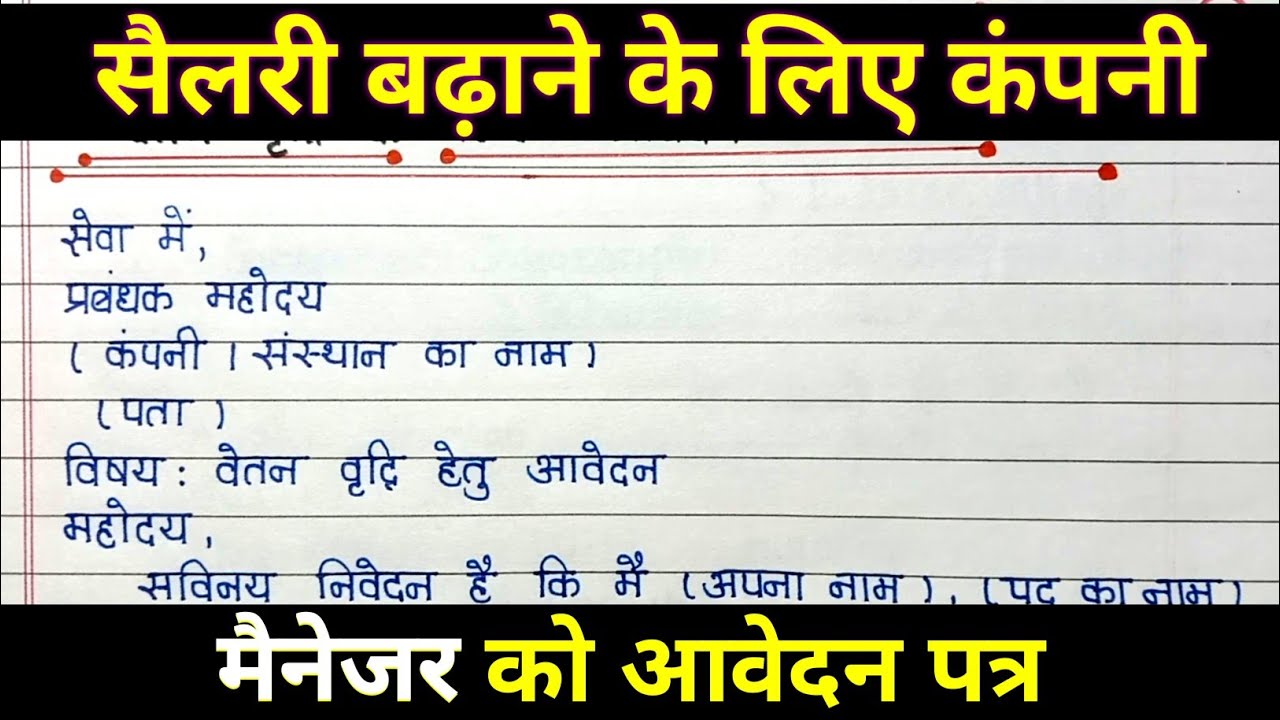 सैलरी बढ़ाने के लिए कंपनी
सेवा में,
प्रबंधक महोदय
( कंपनी । संस्थान का नाम )
( पता )
विषय : वेतन वृद्धि हेतु आवेदन
महोदय,
सविनय निवेदन है कि मै (अपना नाम), (पद का नाम)
मैनेजर को आवेदन पत्र